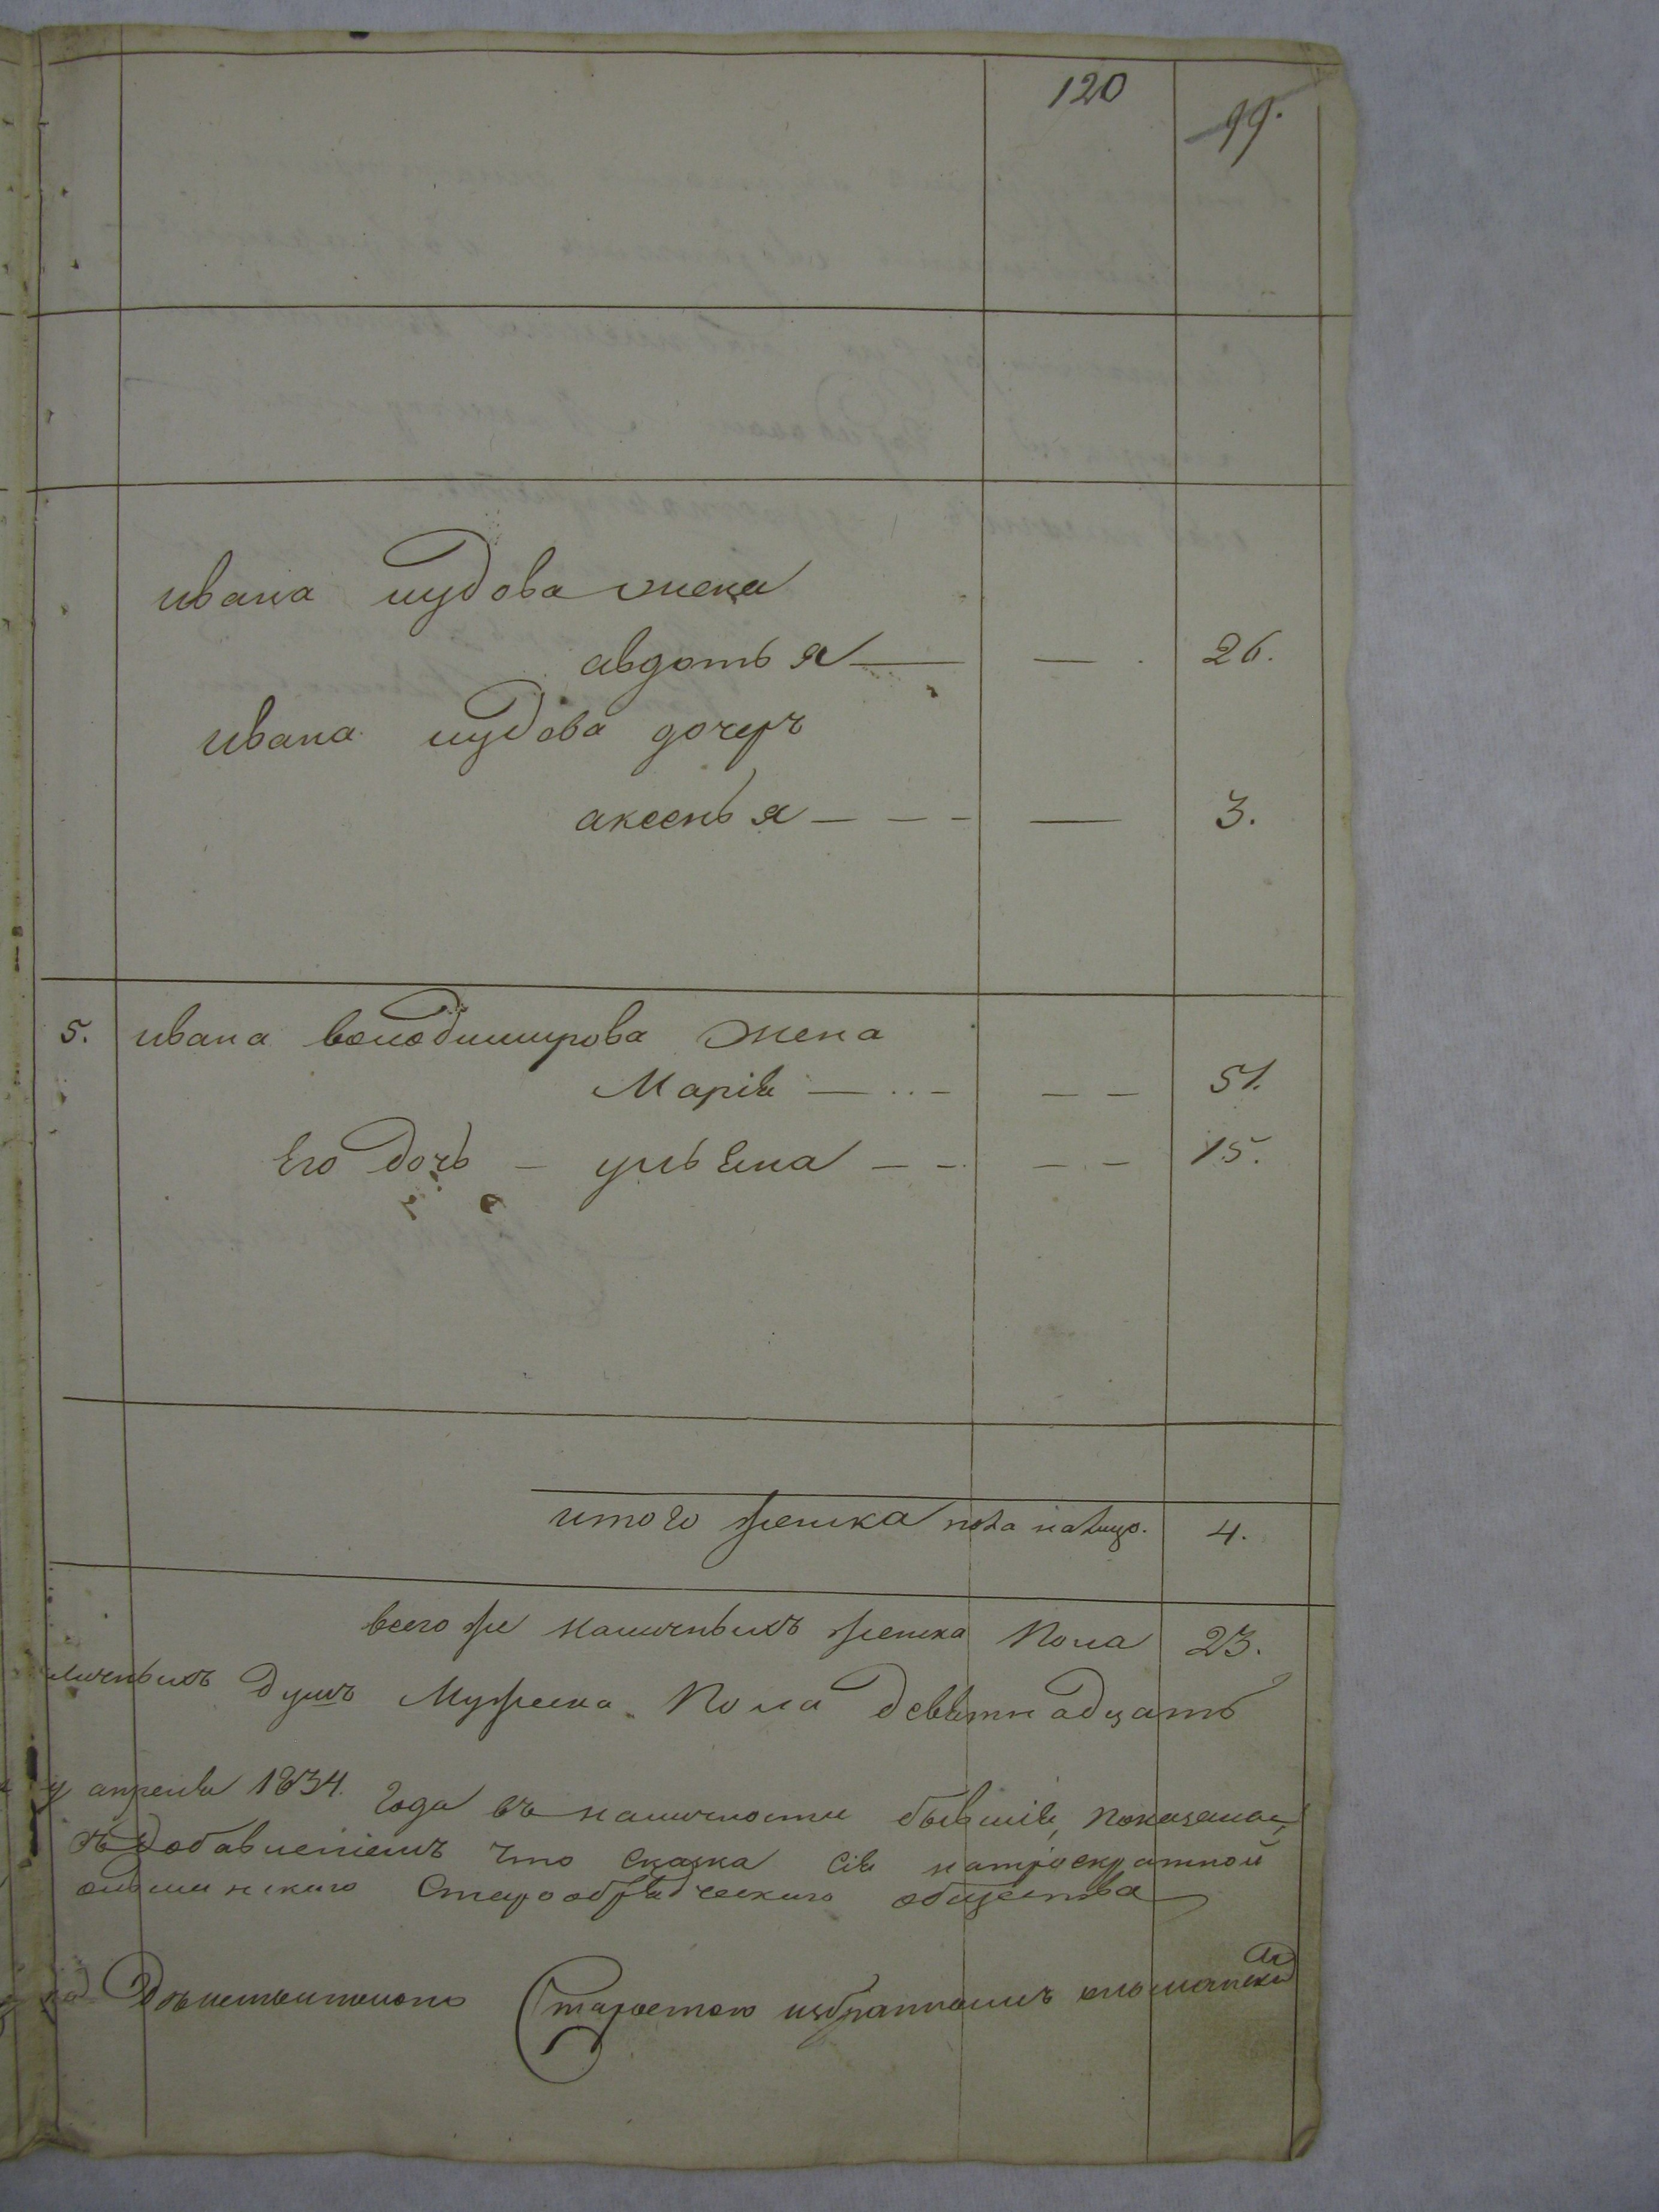 120
99.
ивана пудова жена
авдотья — — . 26.
ивана пудова дочеръ
аксенья — — — — 3.
5. ивана володимирова жена
Марія — — — — 51.
Его дочь — ульяна — — — — 15.
итого женска пола налицо. 4.
всего же наличныхъ женска Пола 23.
личныхъ душъ Мужеска Пола девятнадцать
апреля 1834. года въ наличности бывшія, показана,
съ добавленіемъ что сказка сія
Старообрядческаго общества
Старостою избраннымъ